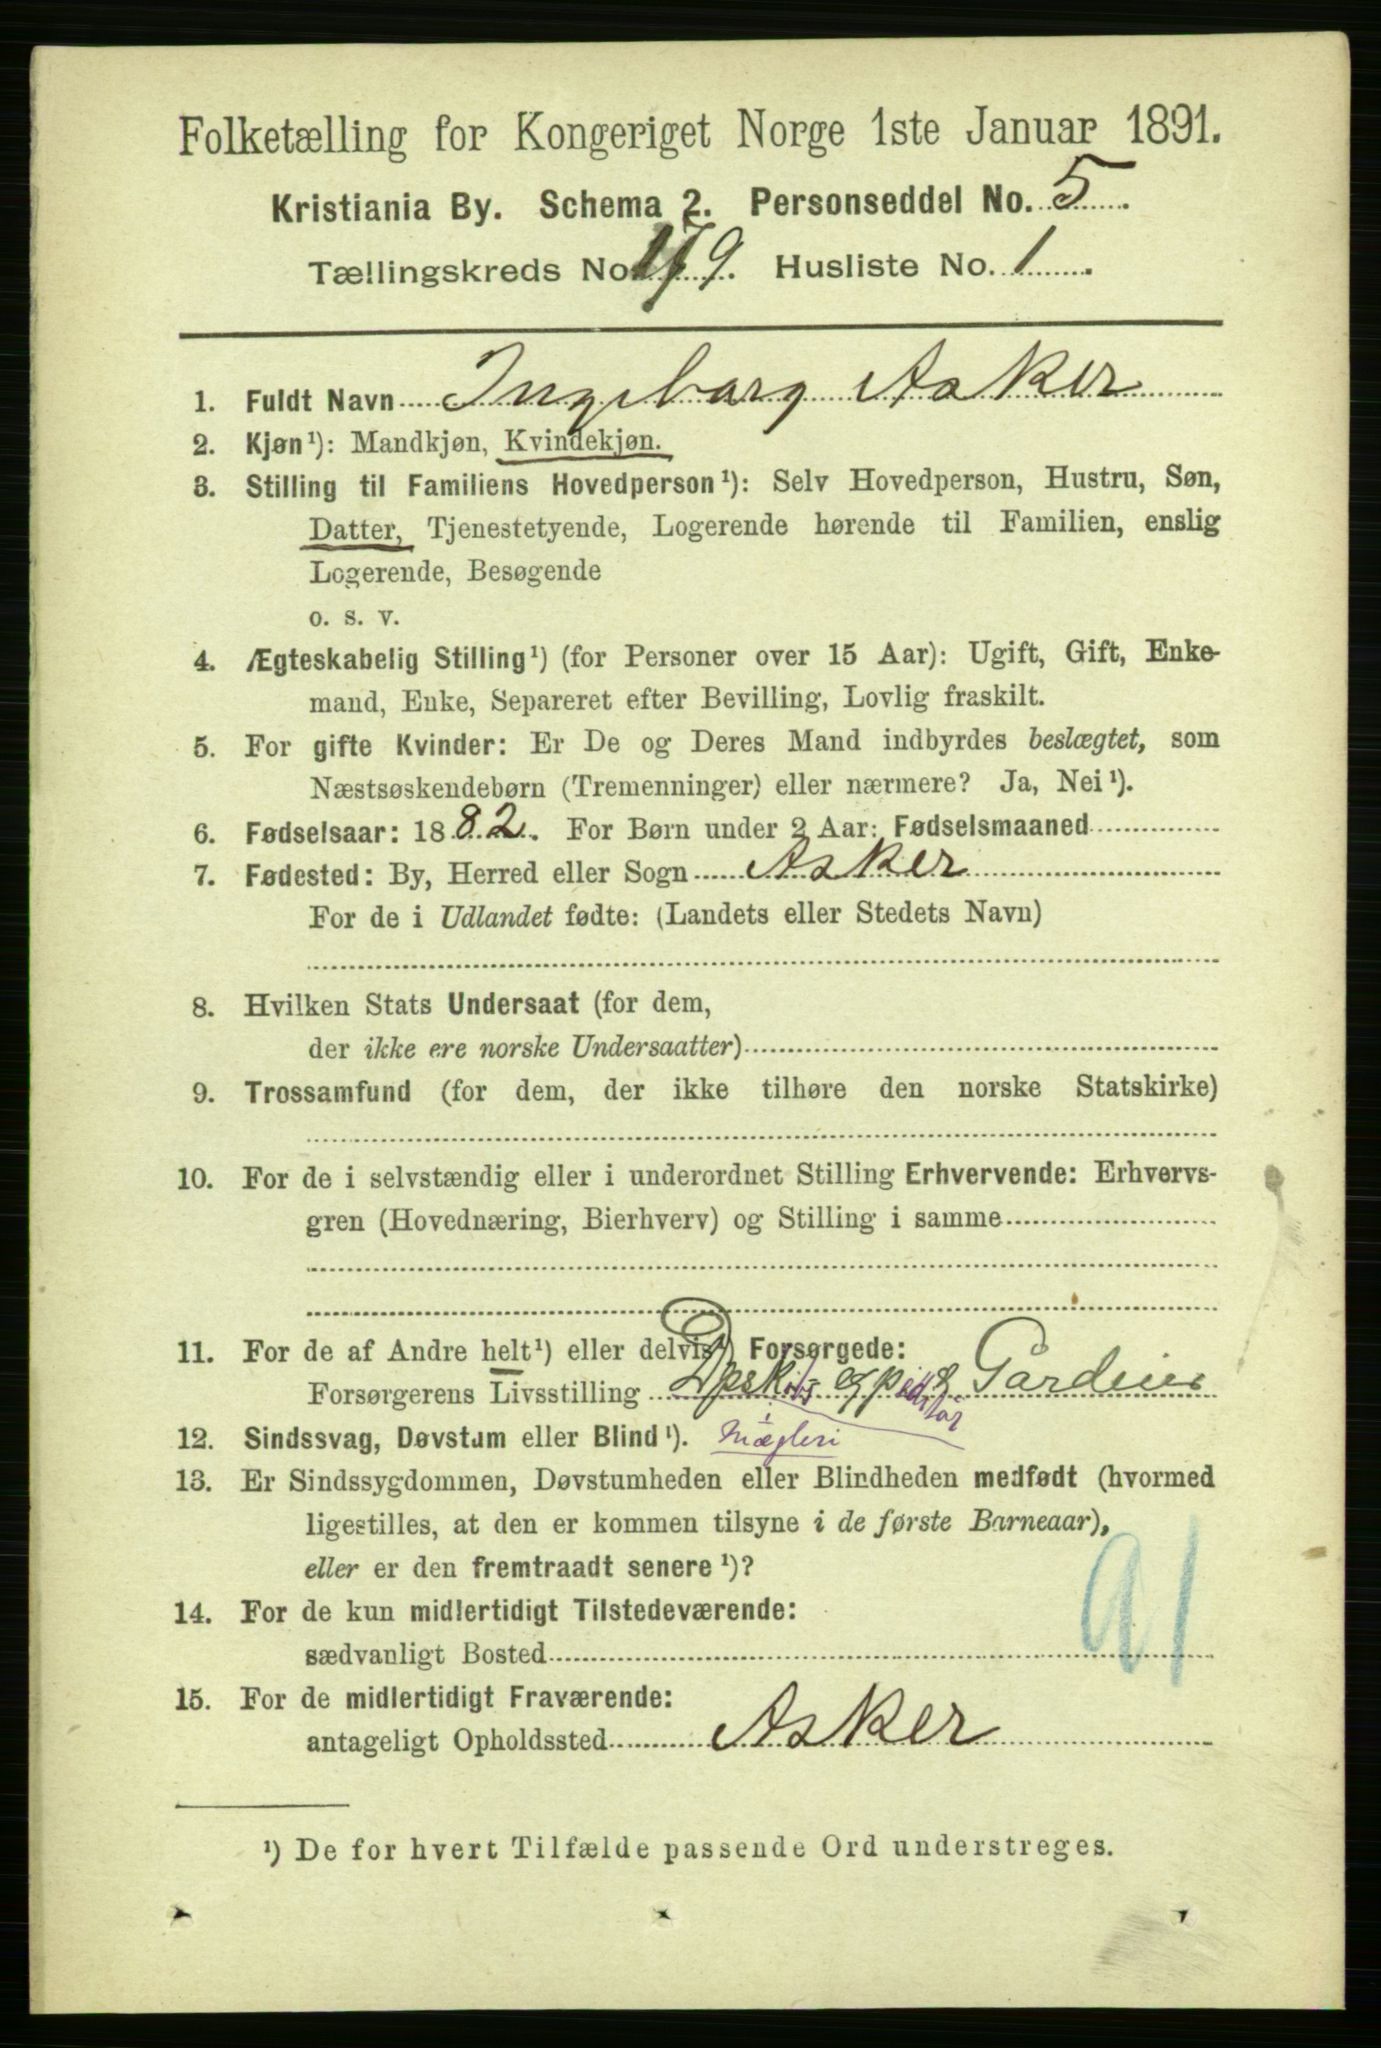 Folketælling for Kongeriget Norge 1ste Januar 1891.
Kristiania By. Schema 2. Personseddel No. 5.
Tællingskreds No. 179. Husliste No. 1.
1. Fuldt Navn Ingeborg Asker
2. Kjøn¹): Mandkjøn, Kvindekjøn.
3. Stilling til Familiens Hovedperson¹): Selv Hovedperson, Hustru, Søn,
Datter, Tjenestetyende, Logerende hørende til Familien, enslig
Logerende, Besøgende
o. s. v.
4. Ægteskabelig Stilling¹) (for Personer over 15 Aar): Ugift, Gift, Enke-
mand, Enke, Separeret efter Bevilling, Lovlig fraskilt.
5. For gifte Kvinder: Er De og Deres Mand indbyrdes beslægtet, som
Næstsøskendebørn (Tremenninger) eller nærmere? Ja, Nei¹).
6. Fødselsaar: 1882. For Børn under 2 Aar: Fødselsmaaned
7. Fødested: By, Herred eller Sogn Asker
For de i Udlandet fødte: (Landets eller Stedets Navn)
8. Hvilken Stats Undersaat (for dem,
der ikke ere norske Undersaatter)
9. Trossamfund (for dem, der ikke tilhøre den norske Statskirke)
10. For de i selvstændig eller i underordnet Stilling Erhvervende: Erhvervs-
gren (Hovednæring, Bierhverv) og Stilling i samme
11. For de af Andre helt¹) eller delvis¹) Forsørgede:
Forsørgerens Livsstilling
12. Sindssvag, Døvstum eller Blind¹). Mægleri
13. Er Sindssygdommen, Døvstumheden eller Blindheden medfødt (hvormed
ligestilles, at den er kommen tilsyne i de første Barneaar),
eller er den fremtraadt senere¹)?
14. For de kun midlertidigt Tilstedeværende:
sædvanligt Bosted
91
15. For de midlertidigt Fraværende:
antageligt Opholdssted Asker
¹) De for hvert Tilfælde passende Ord understreges.